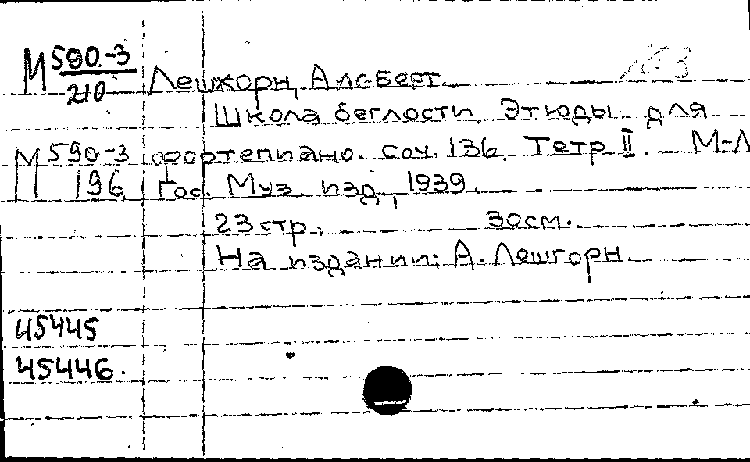 М 590-3
210
Лешхорн, Альберт.
Школа беглости. Этюды для
М 590-3
196
фортепиано. соч. 136. Тетр II. М-Л
Гос. Муз. изд., 1939.
23 стр., 30см.
На издании: А. Лешгорн
45445
45446.